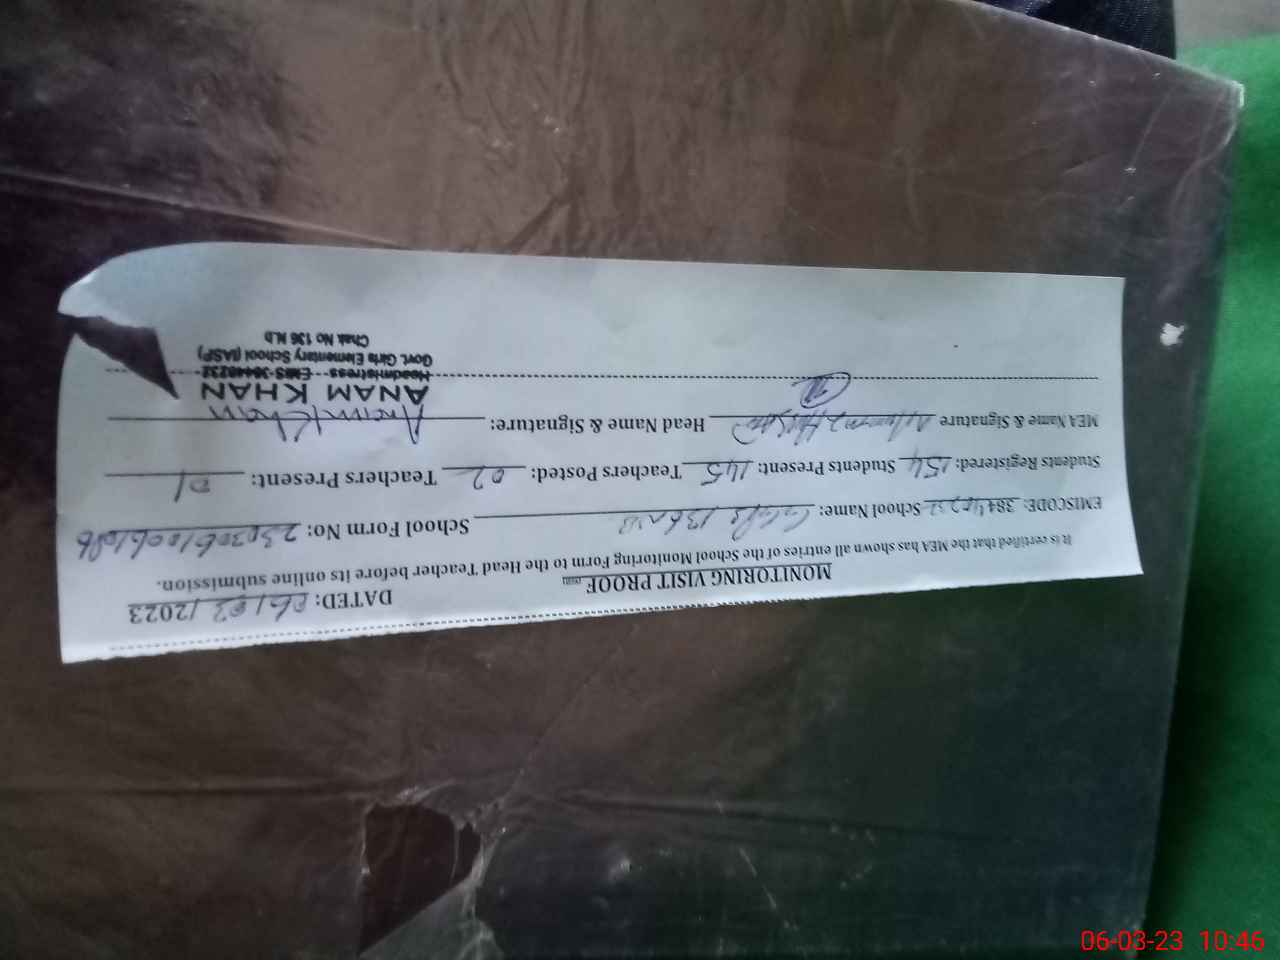 MONITORING VISIT PROOF DATED: 06/03/2023
It is certified that the MEA has shown all entries of the School Monitoring Form to the Head Teacher before its online submission.
EMISCODE: 38440232 School Name: 136 NB School Form No:
Students Registered: 154 Students Present: 145 Teachers Posted: 02 Teachers Present: 01
MEA Name & Signature Head Name & Signature: Anam Khan
ANAM KHAN
Headmistress EMIS-38440232
Govt. Girls Elementary School (IASP)
Chak No 136 N.b
06-03-23 10:46